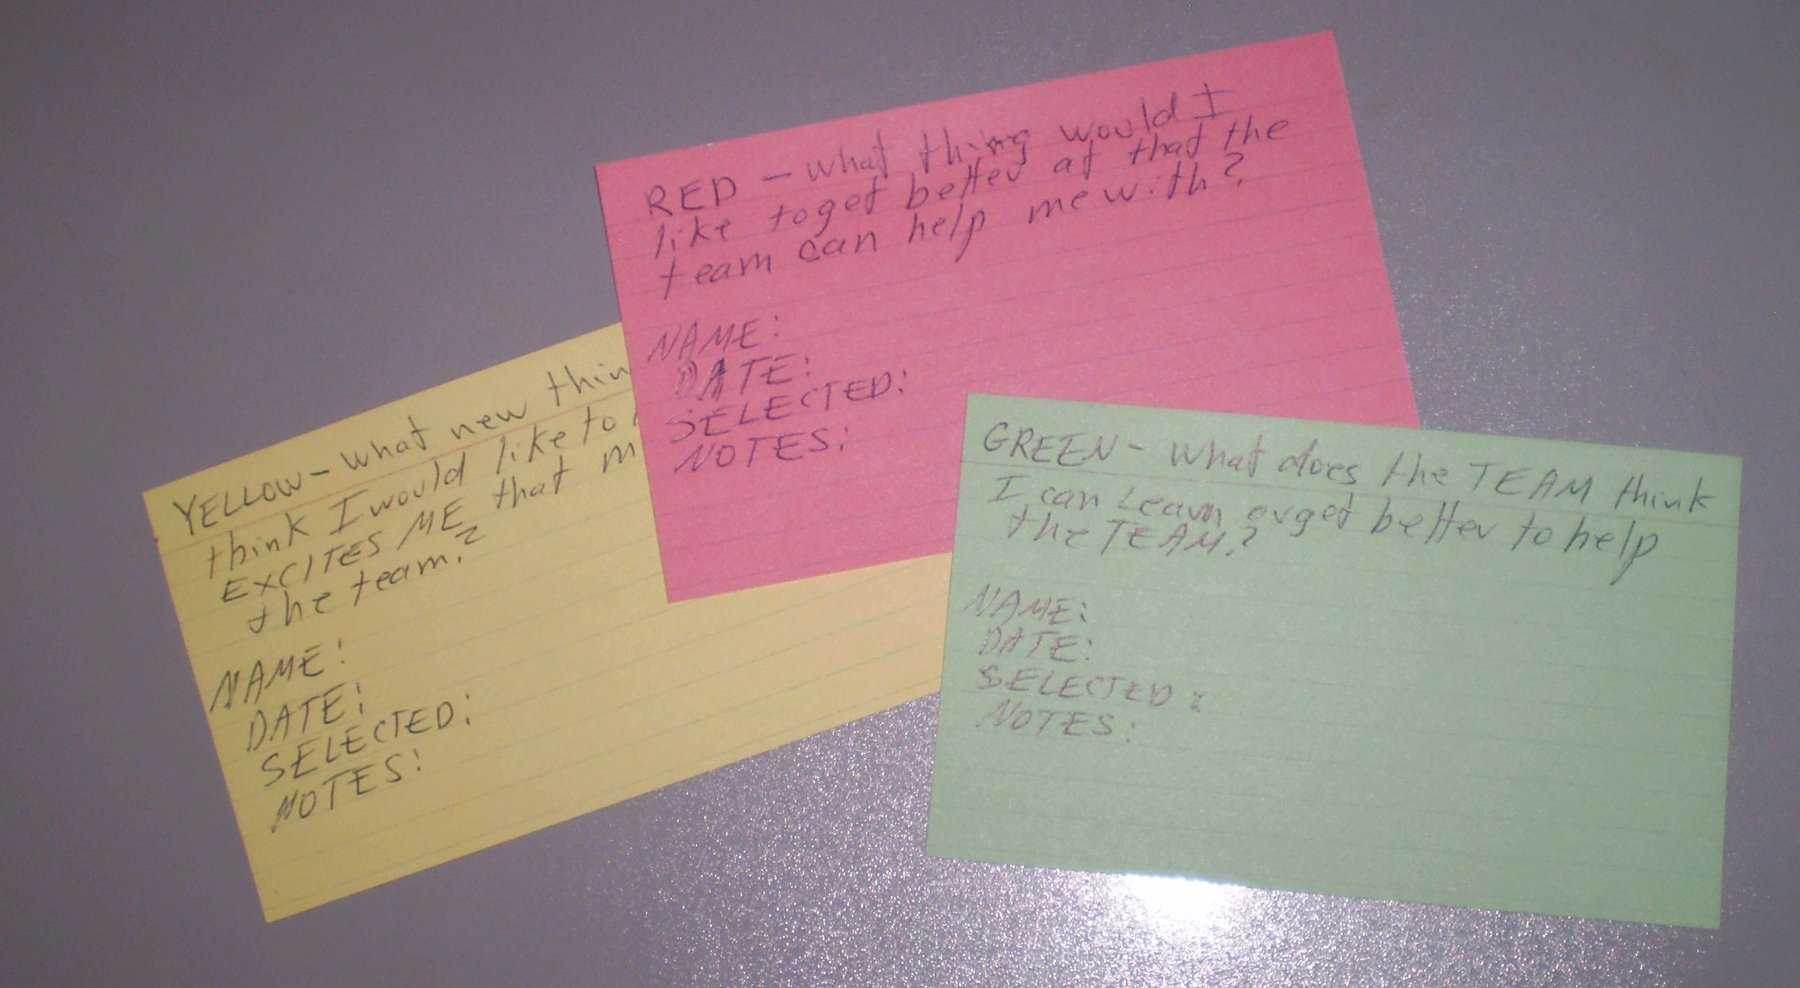 RED - what thing would I
like to get better at that the
team can help me with?
NAME:
DATE:
SELECTED:
NOTES:
YELLOW - what new thin
think I would like to
EXCITES ME that m
the team?
NAME:
DATE:
SELECTED:
NOTES:
GREEN - what does the TEAM think
I can Learn or get better to help
the TEAM?
NAME:
DATE:
SELECTED:
NOTES: